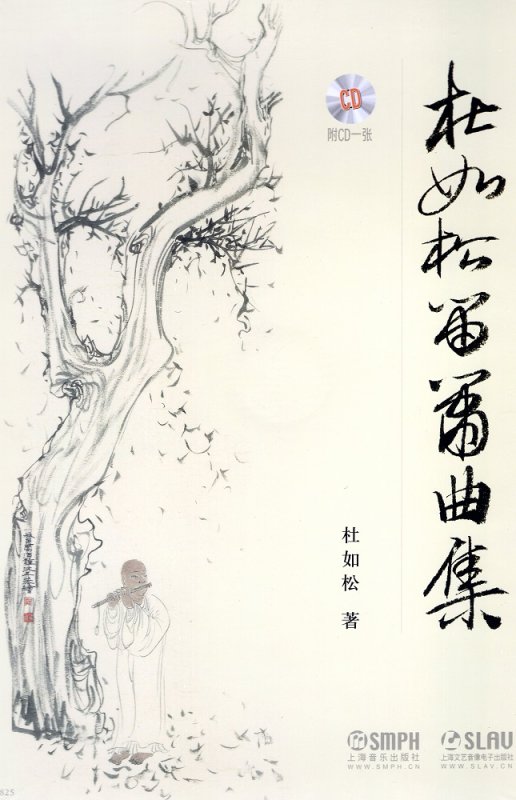 杜如松笛箫曲集
CD
附CD一张
杜如松 著
SMPH
上海音乐出版社
WWW.SMPH.CN
SLAV
上海文艺音像电子出版社
WWW.SLAV.CN
825